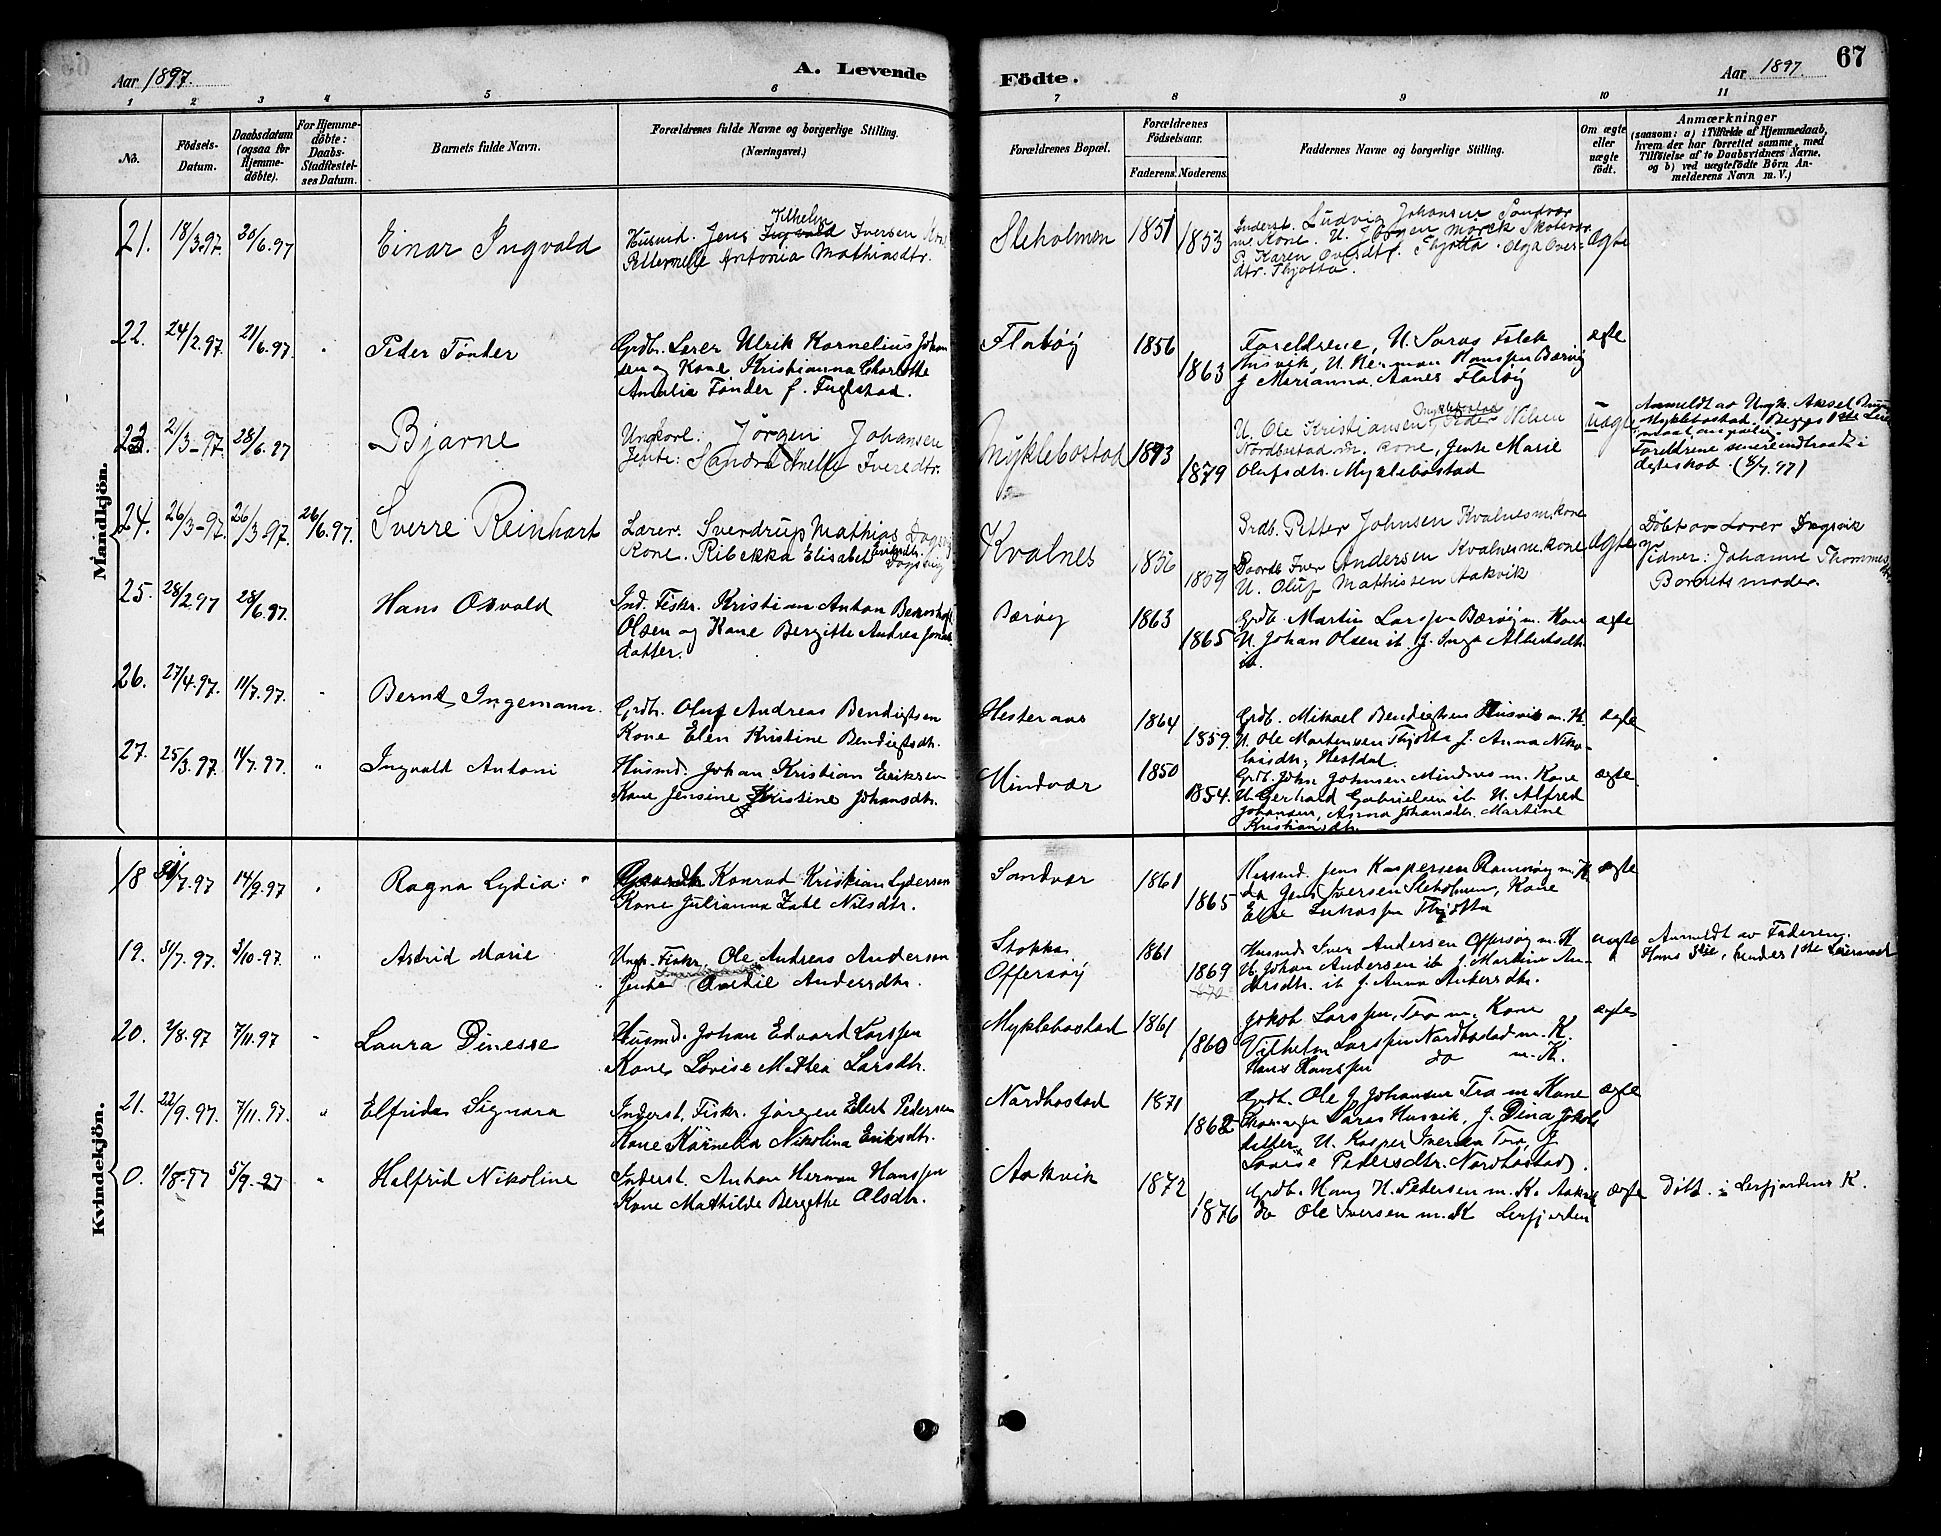 Aar 1897.
A. Levende
Födte.
Aar 1897.
67
1 2 3 4 5 6 7 8 9 10 11
No.
Födsels-Datum.
Daabsdatum (ogsaa for Hjemme-döbte).
For Hjemme-döbte: Daabs-Stadfæstel-ses Datum.
Barnets fulde Navn.
Forældrenes fulde Navne og borgerlige Stilling.
(Næringsvei.)
Forældrenes Bopæl.
Forældrenes Födselsaar.
Faderens. Moderens.
Faddernes Navne og borgerlige Stilling.
Om ægte eller uægte födt.
Anmærkninger
(saasom: a) i Tilfælde af Hjemmedaab, hvem der har forrettet samme, med Tilföielse af to Daabsvidners Navne, og b) ved uægtefödte Börn An-melderens Navn m. V.)
Mandkjön.
21. 18/3.97. 20/6.97 Einar Ingvald
Vilhelm
Husmd. Jens Ingvald Iversen Kone
Petternelle Antonia Mathiasdtr.
Sleholmen 1851 1853
Inderst. Ludvig Johansen Sandvær
m. Kone. U. Jörgen Mörck Skotsvær
P. Karen Oversdtr. Thjötta. Olga Over-
dtr. Thjötta.
Ægte
22. 24/2.97. 21/6.97. " Peder Tönder
Grdbr. Lærer Ulrik Kornelius Johan
sen og Kone Kristianna Charlotte
Amalia Tönder f. Fuglstad.
Flatöy 1856 1863
Foreldrene, U. Saras Falck
Husvik, U. Herman Hanssen Bæröy
J Marianna Aanes Flatöy
ægte
23. 2/3-97. 28/6.97 Bjarne
Ungkarl: Jörgen Johansen
Jente: Sandra Anette Iversdtr.
Myklebostad 1873 1879
Myklebostad
U. Ole Kristiansen, Peder Nilsen
Nordbostad m. Kone, Jente Marie
Olufsdtr. Myklebostad
uægte
Anmeldt av Ungk. Aksel
Myklebostad. Begges 1ste Leier
maal
Foreldrene senere indtraadt i
ægteskab. (4/7.97)
24. 26/3-97. 26/3.97. 26/6.97. Sverre Reinhart
Lærer. Sverdrup Mathias Dagsvik
Kone. Ribekka Elisabet Eriksdtr. Dagsvig
Kvalnes 1856 1859
Grdb. Petter Johnsen Kvalnes m. kone
Gaardb. Iver Andersen Kvalnes m. kone
U. Oluf Mathisen Aakvik
Ægte
Döbt av Lærer Dagsvik
Vidner: Johanne Thommesdtr
Barnets moder.
25. 28/2.97 28/6.97. Hans Osvald
Ind. Fiskr. Kristian Anton Bernhoft
Olsen og Kone Bergitte Andrea Jons
datter.
Bæröy 1863 1865
Grdb. Martin Larssen Bæröy m. Kone
U. Johan Olsen ib. J. Inga Albertsdtr.
ib.
ægte
26. 27/4.97. 11/7.97. " Bernt Ingemann.
Grdbr. Oluf Andreas Bendigtsen
Kone Elen Kristine Bendigtsdtr.
Hesteraas 1864 1859.
Grdb. Mikael Bendigtsen Husvik m. K.
U. Ole Martensen Thjötta J. Anna Niko-
laisdtr, Hestdal.
ægte
27. 25/3.97. 11/7.97. " Ingvald Antoni
Husmd. Johan Kristian Eriksen
Kone Jensine Kristine Johansdtr.
Mindvær 1850 1854.
Grdb. John Johnsen Mindnes m. Kone
U. Gerhard Gabrielsen ib. U. Alfred
Johansen, Anna Johansdtr. Martine
Kristiansdtr.
ægte
Kvindekjön.
18 31/7.97 14/9.97 " Ragna Lydia.
Gaardb. Konrad Kristian Lydersen
Kone Julianna Zahl Nilsdtr.
Sandvær 1861 1865
Husmd. Jens Kaspersen Ramsöy m. K.
do Jens Iversen Sleholmen, Kone
Else Lukassen Thjötta
ægte
19. 31/7.97. 3/10-97. " Astrid Marie
Ungk. Fiskr. Ole Andreas Andersen
Jente Ovedie Andersdtr.
Stokka
Offersöy 1861 1869
Husmd. Iver Andersen Offersöy m. K
U. Johan Andersen ib. J. Martine An-
dersdtr. ib. J. Anna Ankersdtr.
uægte
Anmeldt av Faderen.
Hans 3die, hendes 1ste Leiermaal
20. 2/8.97 7/11.97 " Laura Dinesse
Husmd. Johan Edvard Larssen
Kone Lovise Mathea Larsdtr.
Myklebostad 1861 1860
Jakob Larssen, Tro m. Kone
Vilhelm Larssen Nordbostad m. K.
Hans Hanssen do m. K.
ægte
21. 22/9.97. 7/11.97. " Elfrida Signora
Inderst. Fiskr. Jörgen Elert Pedersen
Kone Kornelia Nikolina Eriksdtr.
Nordbostad 1871 1862
Grdb. Ole J. Johansen Tro m Kone
Saras Husvik, J. Dina Jakobs
datter U. Kasper Iversen Tro, J
Lovise Pedersdtr. Nordbostad.
Ægte
0. 1/8-97 5/9-97 " Halfrid Nikoline
Inderst. Anton Herman Hanssen
Kone Mathilde Bergethe Olsdtr.
Aakvik 1872 1876
Grdb. Hans H. Pedersen m. K. Aakvik
do Ole Iversen m. K Lerfjorden
ægte
Döbt i Lerfjordens K.